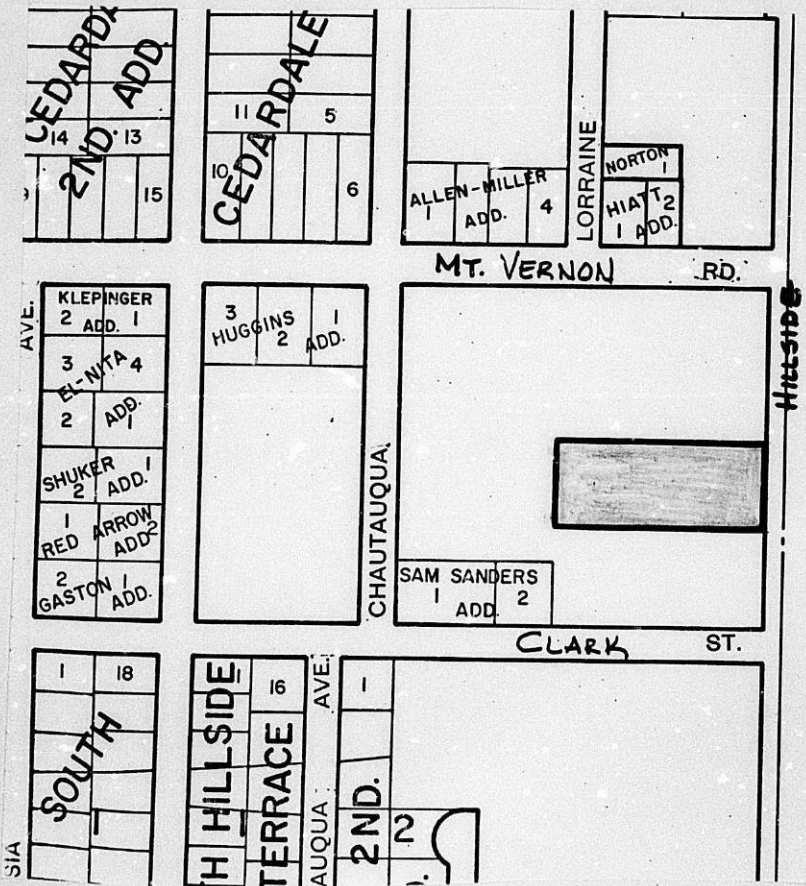 CEDARDA
2ND. ADD.
14 13
9
15
CEDARDALE
11 5
10
6
ALLEN-MILLER
1 ADD. 4
LORRAINE
NORTON 1
HIATT 2
1 ADD.
MT. VERNON RD.
HILLSIDE
AVE.
KLEPINGER
2 ADD. 1
3 4
EL-NITA
2 ADD. 1
SHUKER 1
2 ADD.
1 ARROW 2
RED ADD
2 1
GASTON ADD.
3 1
HUGGINS
2 ADD.
CHAUTAUQUA
SAM SANDERS
1 ADD. 2
CLARK ST.
1 18
SOUTH
1
TH HILLSIDE
1
16
TERRACE
AVE.
AUQUA
1
2ND.
2
D.
SIA